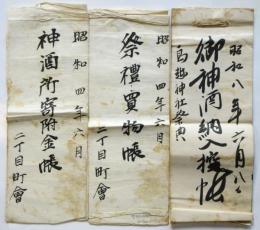 昭和八年六月八日
御神酒納入控帳
鳥越神社祭典
昭和四年六月
祭禮買物帳
二丁目町會
昭和四年六月
神酒所寄附金帳
二丁目町會